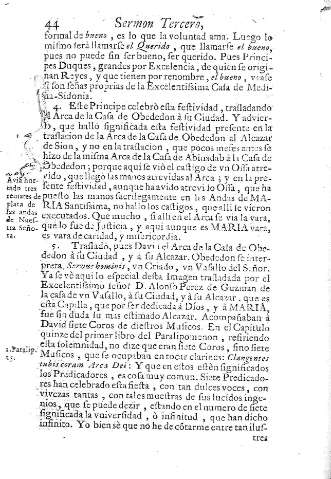 44 Sermon Tercero,
formal de bueno, es lo que la voluntad ama. Luego lo
mismo serà llamarse el Querido, que llamarse el bueno,
pues no puede sin ser bueno, ser querido. Pues Princi-
pes Duques, grandes por Excelencia, de quien se origi-
nan Reyes, y que tienen por renombre, el bueno,
son señas proprias de la Excelentissima Casa de Medi-
na-Sidonia.
4. Este Principe celebrò esta festividad, trasladando
el Arca de la Casa de Obededon à su Ciudad. Y advier-
to, que hallò significada esta festividad presente en la
traslacion de la Arca de la Casa de Obededon al Alcazar
de Sion, y no en la traslacion, que pocos meses antes se
hizo de la misma Arca de la Casa de Abinadab à la Casa de
Obededon; porque aqui se viò el castigo de vn Ossa atre-
vido, que llegò las manos atrevidas al Arca; y en la pre-
sente festividad, aunque ha avido atrevido Ossa, que ha
puesto las manos sacrilegamente en las Andas de MA-
RIA Santissima, no hallo los castigos, que alli se vieron
executados. Que mucho, si alli en el Arca se via la vara,
que lo fue de Justicia, y aqui aunque es MARIA vara,
es vara de caridad, y misericordia.
Avia hur-
tado tres
cañones de
plata de
las andas
de Nues-
tra Seño-
ra.
5. Trasladò, pues David el Arca de la Casa de Obe-
dedon à su Ciudad, y à su Alcazar. Obededon se inter-
preta, Servus hominis, vn Criado, vn Vasallo del Señor.
Ya se vè aqui lo especial desta Imagen trasladada por el
Excelentissimo Señor D. Alonso Perez de Guzman de
la casa de vn Vasallo, à su Ciudad, y à su Alcazar, que es
esta Capilla, que por ser dedicada à Dios, y à MARIA,
fue sin duda su mas estimado Alcazar. Acompañaban à
David siete Coros de diestros Musicos. En el Capitulo
quinze del primer libro del Paralipomenon, refiriendo
esta solemnidad, no dize que eran siete Coros, sino siete
Musicos, que se ocupaban en tocar clarines: Clangentes
tubis coram Arca Dei: Y que en estos estèn significados
los Predicadores, es cosa muy comun. Siete Predicado-
res han celebrado esta fiesta, con tan dulces voces, con
vivezas tantas, con tales muestras de sus lucidos inge-
nios, que se puede dezir, estando en el numero de siete
significada la vniversidad, ò infinitud, que han dicho
infinito. Yo bien sè que no he de côtarme entre tan ilus-
tres
1. Paralip.
15.